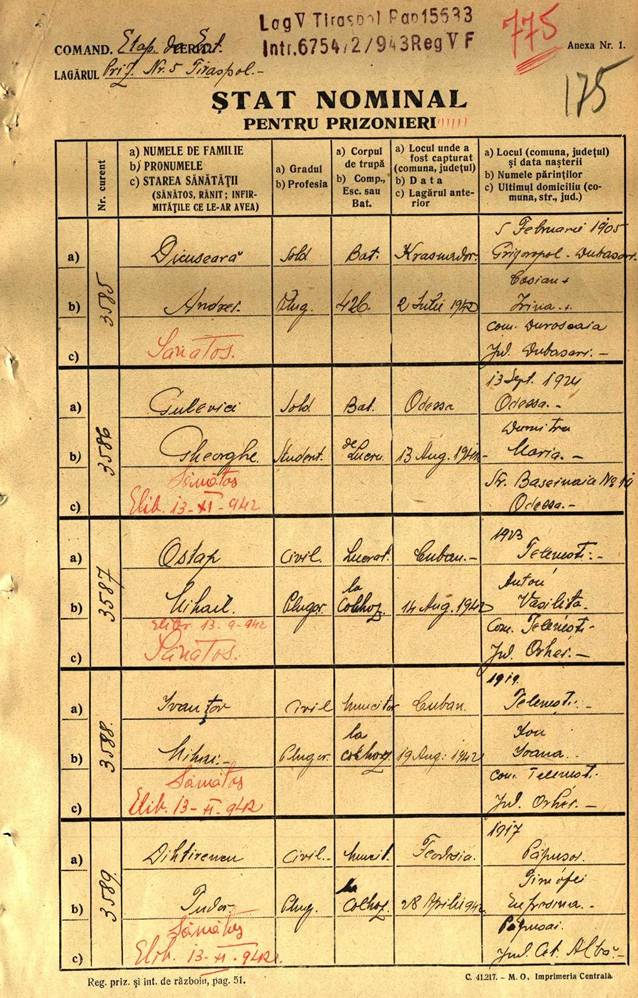 Lag V Tiraspol Pap 15633
Intr. 6754/2/943 Reg V F
775
COMAND. Etap. de Est.
Anexa Nr. 1.
LAGĂRUL Priz. Nr. 5 Tiraspol.-
175
ȘTAT NOMINAL
PENTRU PRIZONIERI
Nr. curent
a) NUMELE DE FAMILIE
b) PRONUMELE
c) STAREA SĂNĂTĂȚII
(SĂNĂTOS, RĂNIT; INFIR-
MITĂȚILE CE LE-AR AVEA)
a) Gradul
b) Profesia
a) Corpul
de trupă
b) Comp.,
Esc. sau
Bat.
a) Locul unde a
fost capturat
(comuna, județul)
b) Data
c) Lagărul ante-
rior
a) Locul (comuna, județul)
și data nașterii
b) Numele părinților
c) Ultimul domiciliu (co-
muna, str., jud.)
3585
5 Februarie 1905
a) Dicuseară Sold Bat. Krasnodor. Grigoropol - Dubasari
Casian +
b) Andrei. Plug. 426. 2 Iulie 1942 Irina +
com.
c) Sănătos. Jud. Dubasari. -
3586
13 Sept. 1924
a) Gulevici Sold Bat. Odessa Odessa. -
Dumitru
b) Gheorghe. Student. de Lucru. 13 Aug. 1941 Maria. -
Sănătos Str. Baseinaia No 10
c) Elib. 13-XI-942 Odessa. -
3587
1923
a) Ostap Civil. Lucrat. Cuban. - Telenești. -
Anton
b) Mihail. Plugar. la Colhoz. 14 Aug. 1942 Vasilița.
Elib. 13-9-942 Com. Telenești -
c) Sănătos. Jud. Orhei. -
3588.
1919.
a) Ivanțov Civil Muncitor Cuban. Telenești. -
Ion
b) Mihai. Plugar. la colhoz. 19 Aug. 1942 Ioana.
Sănătos com. Telenești.
c) Elib. 13-XI-942 Jud. Orhei. -
3589.
1917
a) Dihtirencu Civil. Muncit. Feodosia. Păpușoi.
Timofei
b) Tudor Plug. la Colhoz. 28 Aprilie 942 Eufrosina. -
Sănătos
c) Elib. 13-XI-942. Jud. Cet. Albă. -
Reg. priz. și int. de războiu, pag. 51.
C. 41.217. - M. O., Imprimeria Centrală.